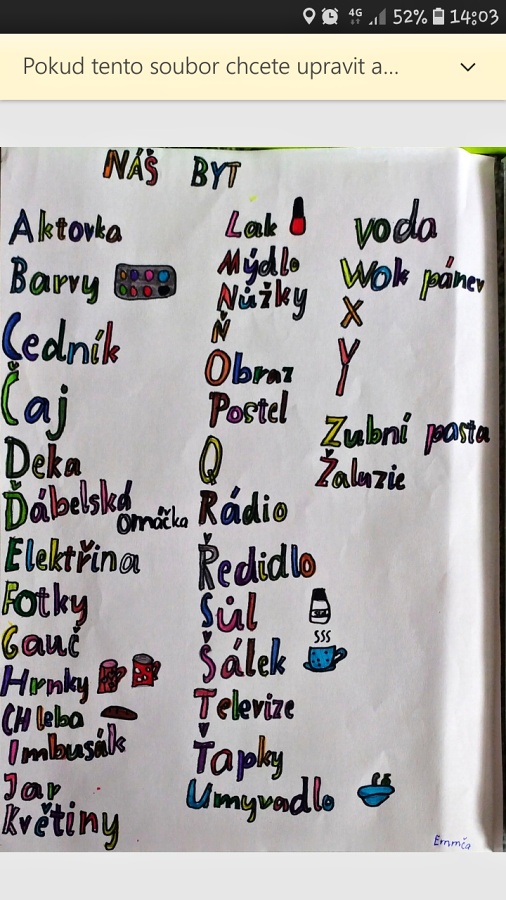 4G 52% 14:03
Pokud tento soubor chcete upravit a...
NÁŠ BYT
Aktovka
Barvy
Cedník
Čaj
Deka
Ďábelská
omáčka
Elektřina
Fotky
Gauč
Hrnky
CHleba
Imbusák
Jar
Květiny
Lak
Mýdlo
Nůžky
Ň
Obraz
Postel
Q
Rádio
Ředidlo
Sůl
Šálek
Televize
Ťapky
Umyvadlo
voda
Wok pánev
X
Y
Zubní pasta
Žaluzie
Emmča